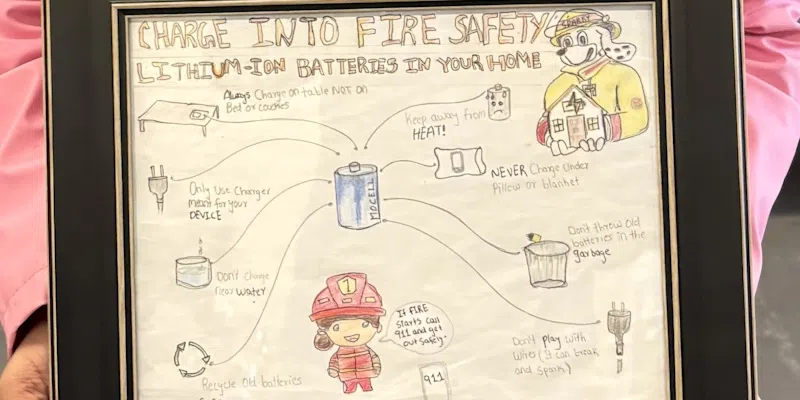 CHARGE INTO FIRE SAFETY
LITHIUM-ION BATTERIES IN YOUR HOME
Always Charge on table NOT on
Bed or couches
Keep away from
HEAT!
Only use Charger
meant for your
DEVICE
NEVER Charge Under
Pillow or blanket
MOCELL
Don't Charge
near water
Don't throw Old
batteries in the
garbage
1
If FIRE
starts call
911 and get
out safely.
911
Don't play with
Wire (It can break
and spark)
Recycle Old batteries